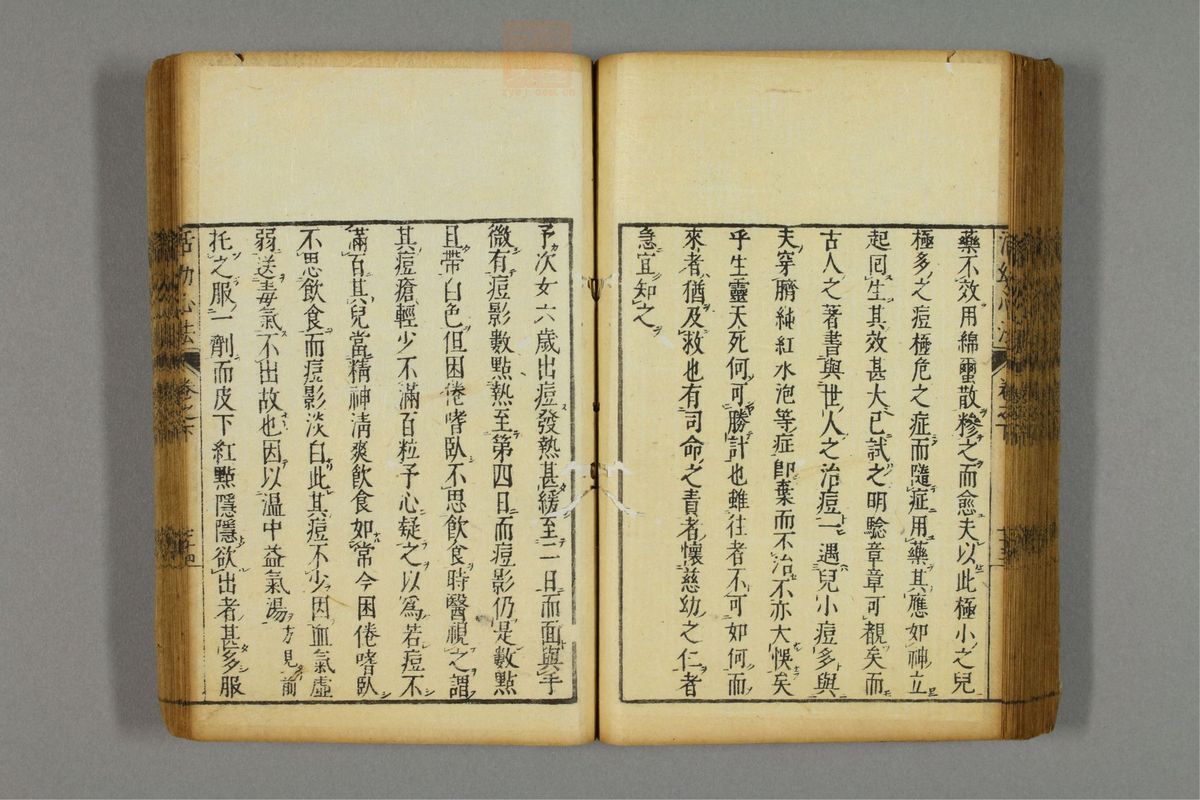 藥不效用綿蠒散糝之而愈夫以此極小之兒
極多之痘極危之症而隨症用藥其應如神立
起囘生其效甚大已試之明驗章章可覩矣而
古人之著書與世人之治痘一遇兒小痘多與
夫穿臍純紅水泡等症卽棄而不治不亦大悞矣
乎生靈夭死何可勝計也雖往者不可如何而
來者猶及救也有司命之責者懷慈幼之仁者
急宜知之
予次女六歳出痘發熱甚緩至二日而面與手
微有痘影數點熱至第四日而痘影仍是數點
且帶白色但困倦嗜臥不思飲食時醫視之謂
其痘瘡輕少不滿百粒予心疑之以爲若痘不
滿百其兒當精神淸爽飲食如常今困倦嗜臥
不思飲食而痘影淡白此其痘不少因血氣虛
弱送毒氣不出故也因以溫中益氣湯方見前
托之服一劑而皮下紅點隱隱欲出者甚多服
活幼心法 卷之下